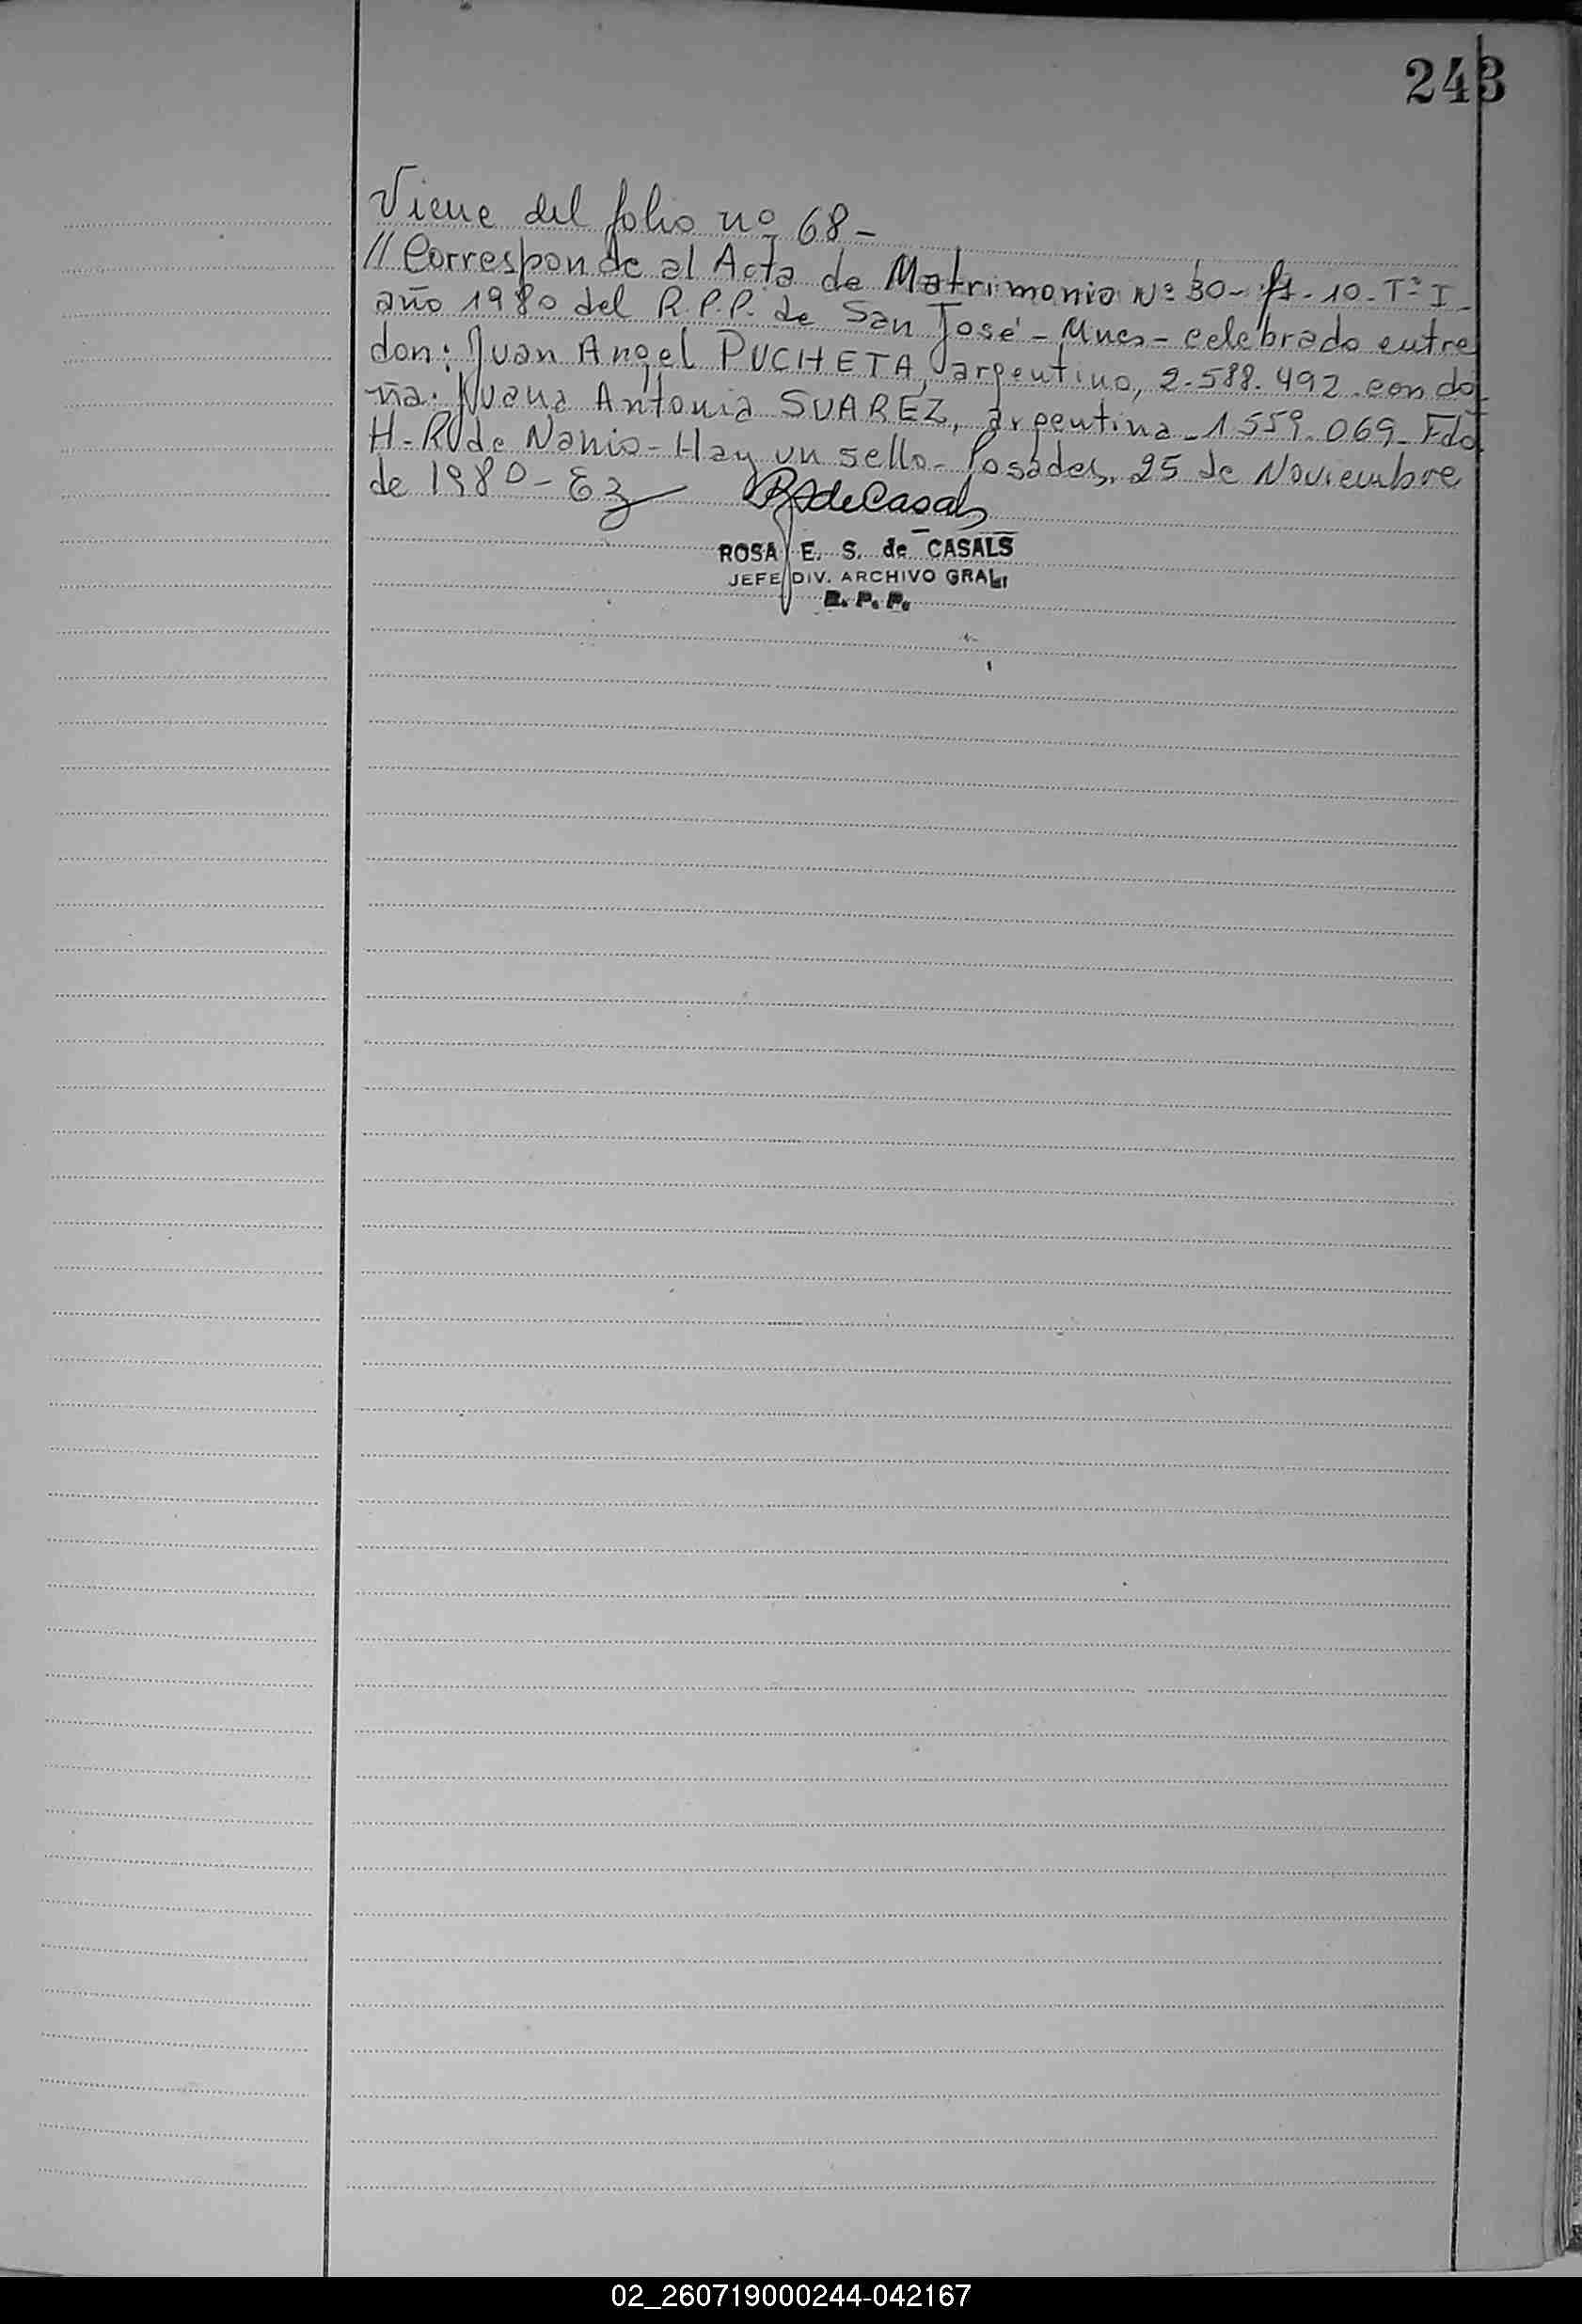 243
Viene del folio nº 68-
// Corresponde al Acta de Matrimonio Nº 30- fº- 10- Tº I-
año 1980 del R.P.P. de San José - Mnes - celebrado entre
don: Juan Angel PUCHETA, argentino, 2.588.492 con do-
ña: Juana Antonia SUAREZ, argentina - 1559.069- Fdo
H- R de Nanio - Hay un sello - Posadas, 25 de Noviembre
de 1980 -
RSdeCasals
ROSA E. S. de CASALS
JEFE DIV. ARCHIVO GRAL.
R. P. P.
02_260719000244-042167